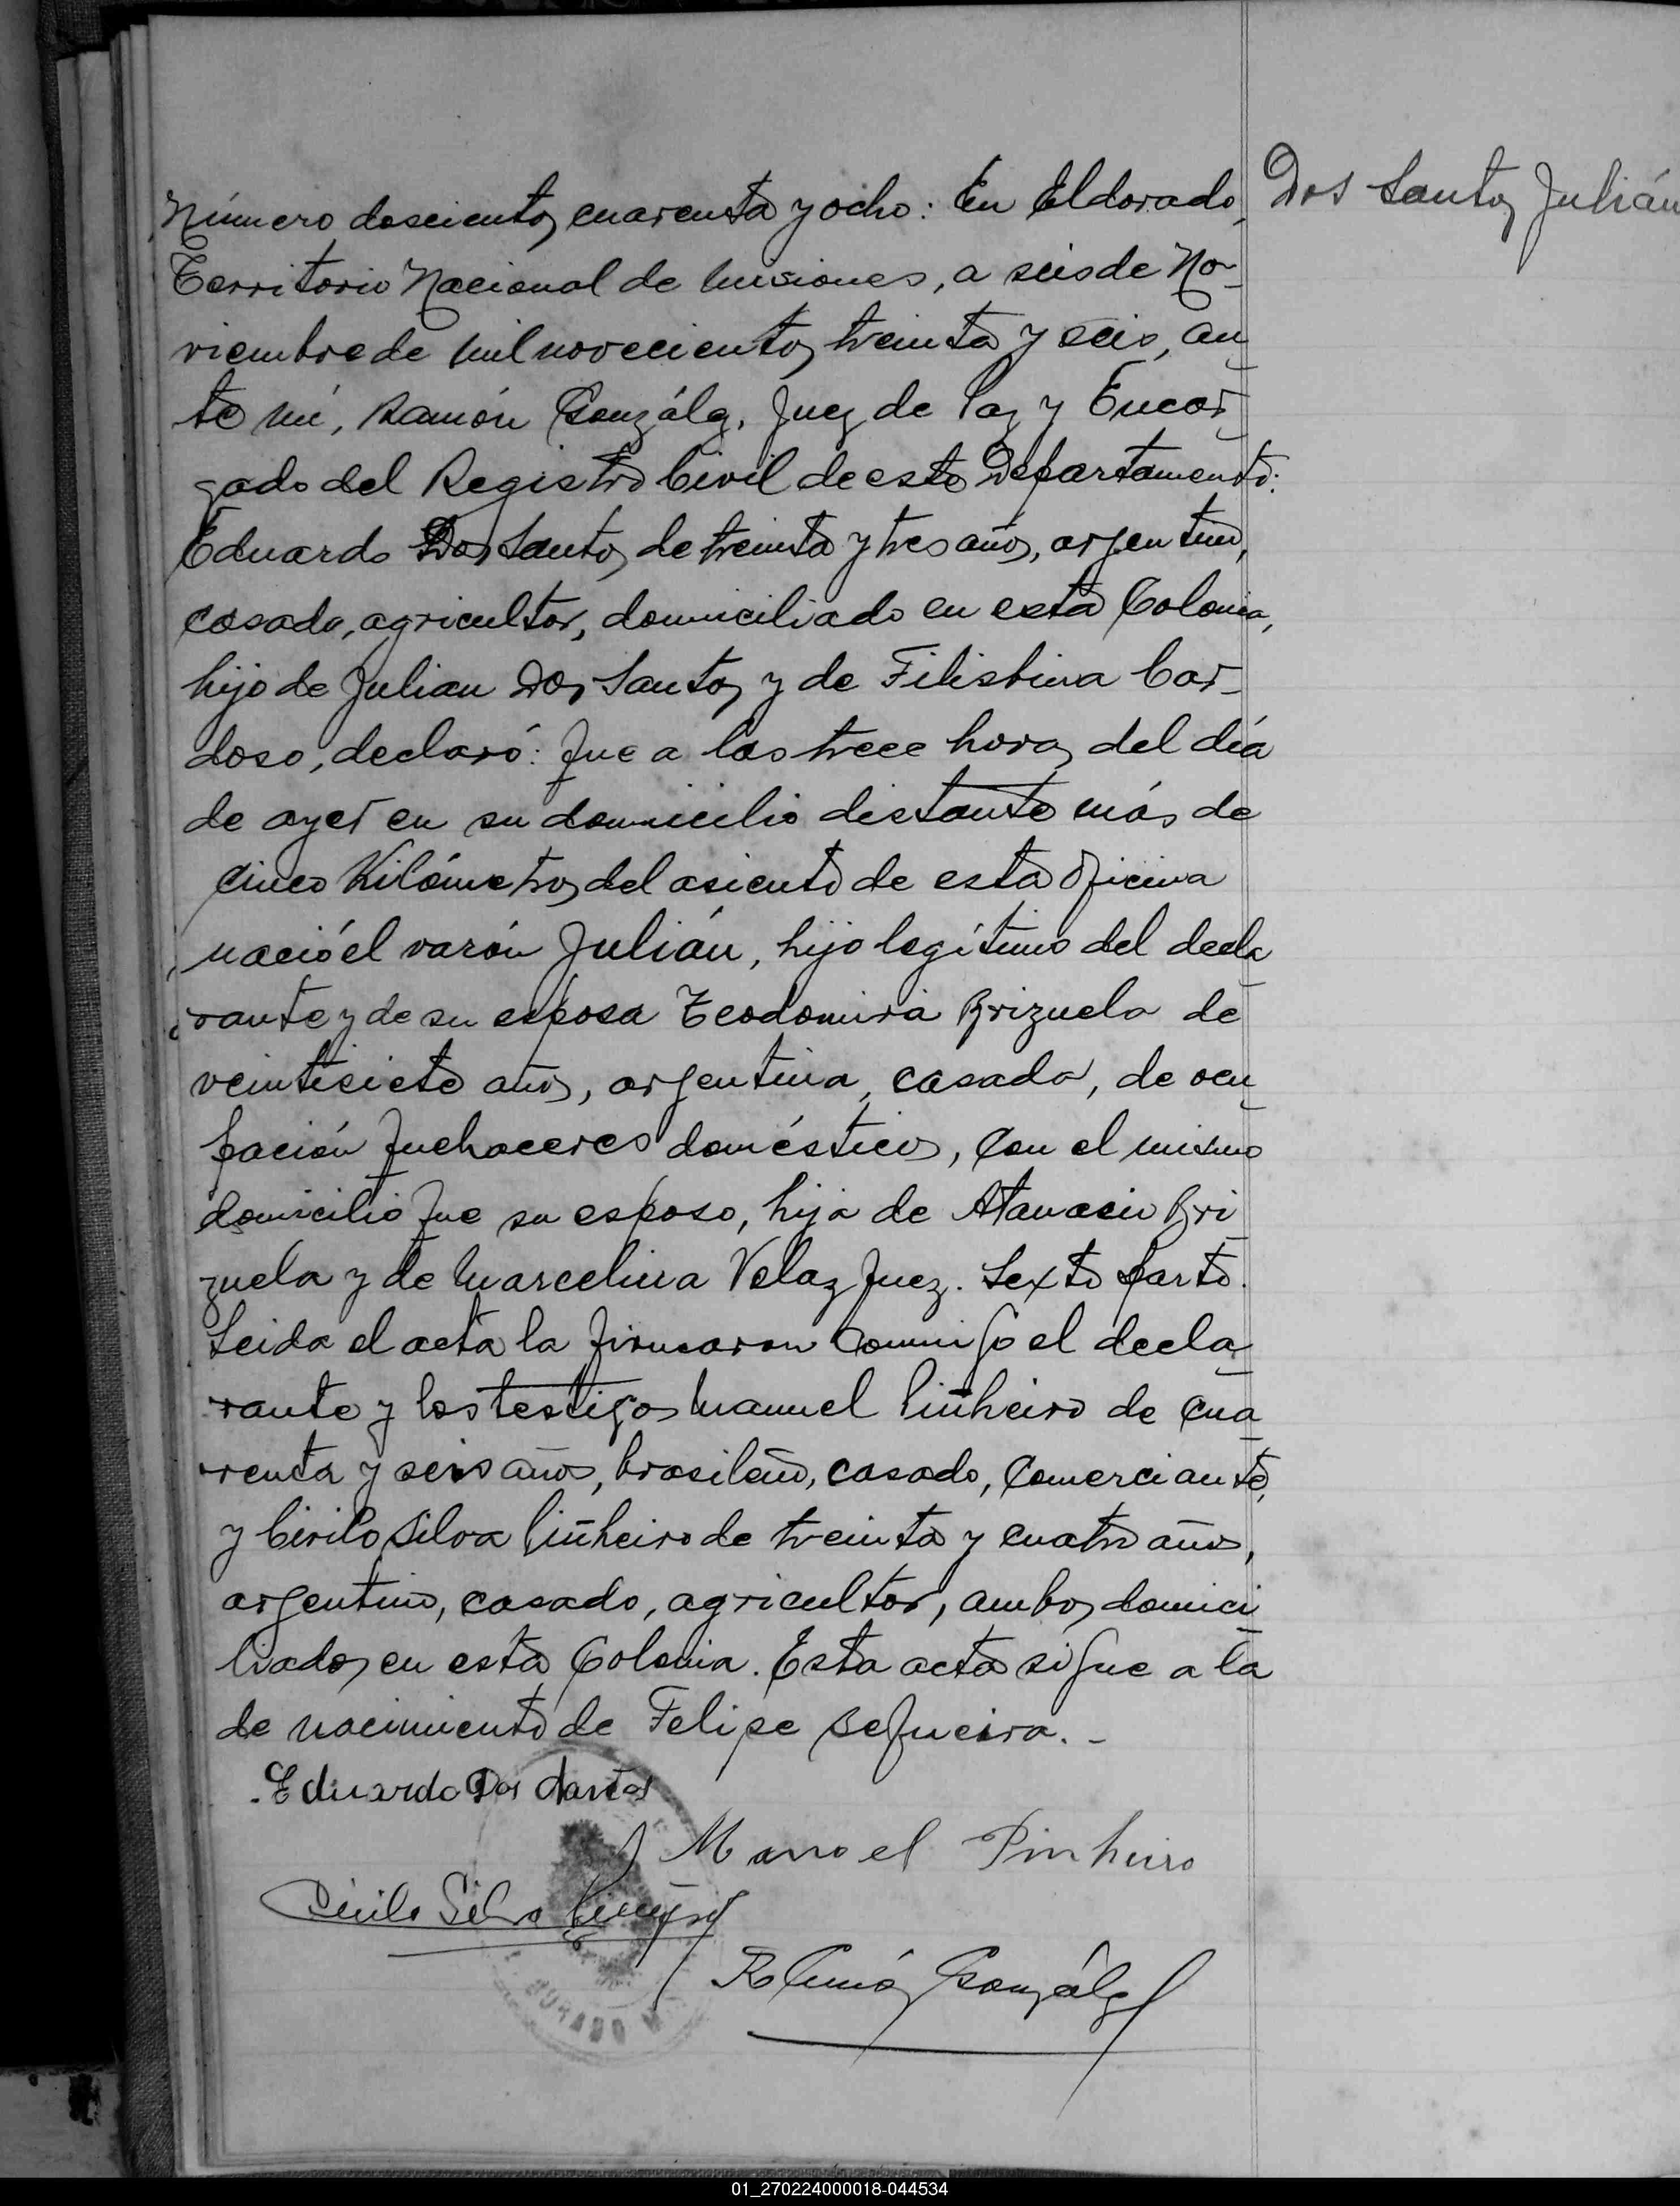 Dos Santos Julián
Número doscientos cuarenta y ocho: En Eldorado,
Territorio Nacional de Misiones, a seis de No-
viembre de mil novecientos treinta y seis, an-
te mí, Ramón González, Juez de Paz y Encar-
gado del Registro Civil de este Departamento:
Eduardo Dos Santos de treinta y tres años, argentino,
casado, agricultor, domiciliado en esta Colonia,
hijo de Julian Dos Santos y de Filistina Car-
doso, declaró: Que a las trece horas del día
de ayer en su domicilio distante más de
cinco Kilómetros del asiento de esta Oficina
nació el varón Julián, hijo legítimo del decla-
rante y de su esposa Teodomira Brizuela de
veintisiete años, argentina, casada, de ocu-
pación quehaceres domésticos, con el mismo
domicilio que su esposo, hija de Atanacio Bri-
zuela y de Marcelina Velazquez. Sexto parto.
Leida el acta la firmaron conmigo el decla-
rante y los testigos Manuel Piñheiro de cua-
renta y seis años, brasileño, casado, comerciante,
y Cirilo Silva Piñheiro de treinta y cuatro años,
argentino, casado, agricultor, ambos domici-
liados en esta Colonia. Esta acta sigue a la
de nacimiento de Felipe Sequeira.-
Eduardo Dos Santos
Manoel Pinheiro
Cirilo Silva
Ramón González
DORADO M
01_270224000018-044534